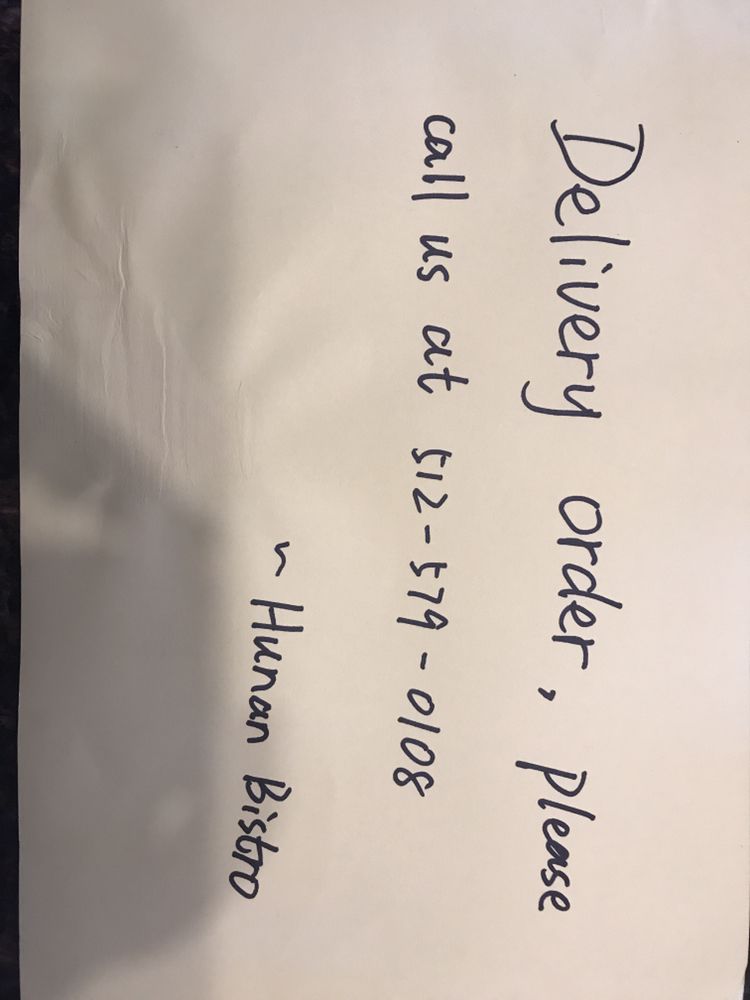 Delivery order, please
call us at 512-579-0108
~ Hunan Bistro